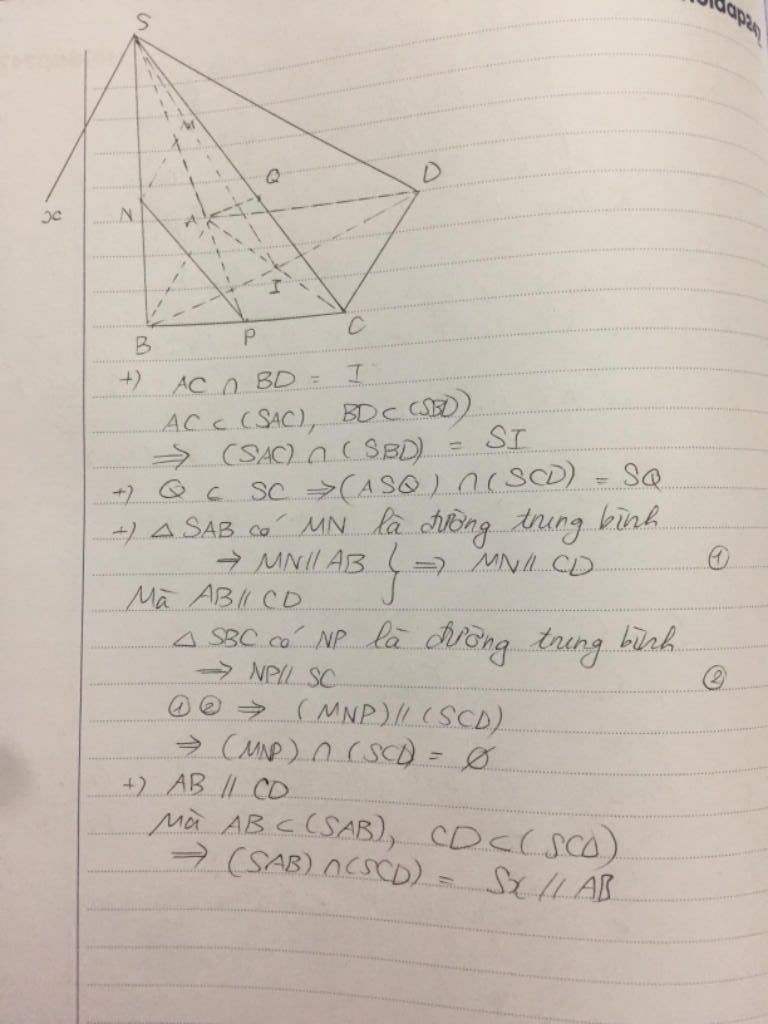 hoidap247
S
M
Q
D
x
N
A
I
B
P
C
+) AC ∩ BD = I
AC ⊂ (SAC), BD ⊂ (SBD)
⇒ (SAC) ∩ (SBD) = SI
+) Q ⊂ SC ⇒ (ASQ) ∩ (SCD) = SQ
+) △ SAB có MN là đường trung bình
→ MN // AB } ⇒ MN // CD ①
Mà AB // CD
△ SBC có NP là đường trung bình
→ NP // SC ②
① ② ⇒ (MNP) // (SCD)
⇒ (MNP) ∩ (SCD) = ∅
+) AB // CD
Mà AB ⊂ (SAB), CD ⊂ (SCD)
⇒ (SAB) ∩ (SCD) = Sx // AB